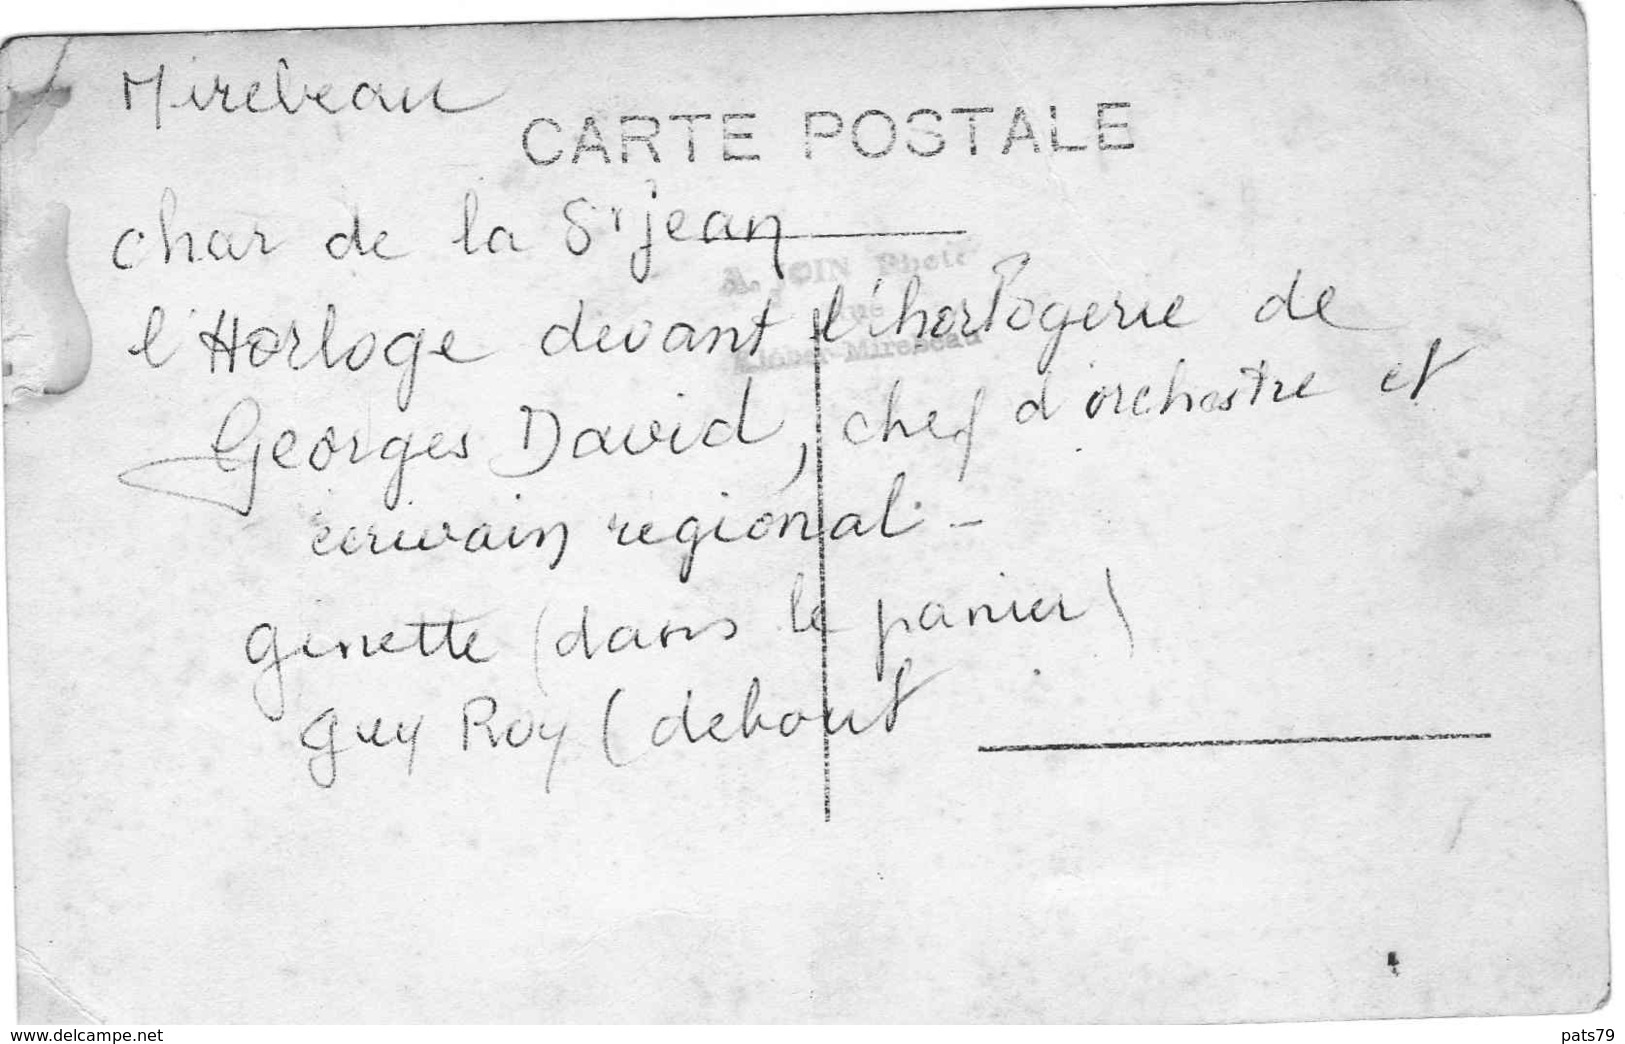 Mirebeau
CARTE POSTALE
char de la St jean
A. JOIN Photo
l'Horloge devant l'horlogerie de
Mirebeau
Georges David, chef d'orchestre et
écrivain regional -
ginette (dans le panier)
guy Roy (debout
www.delcampe.net
pats79